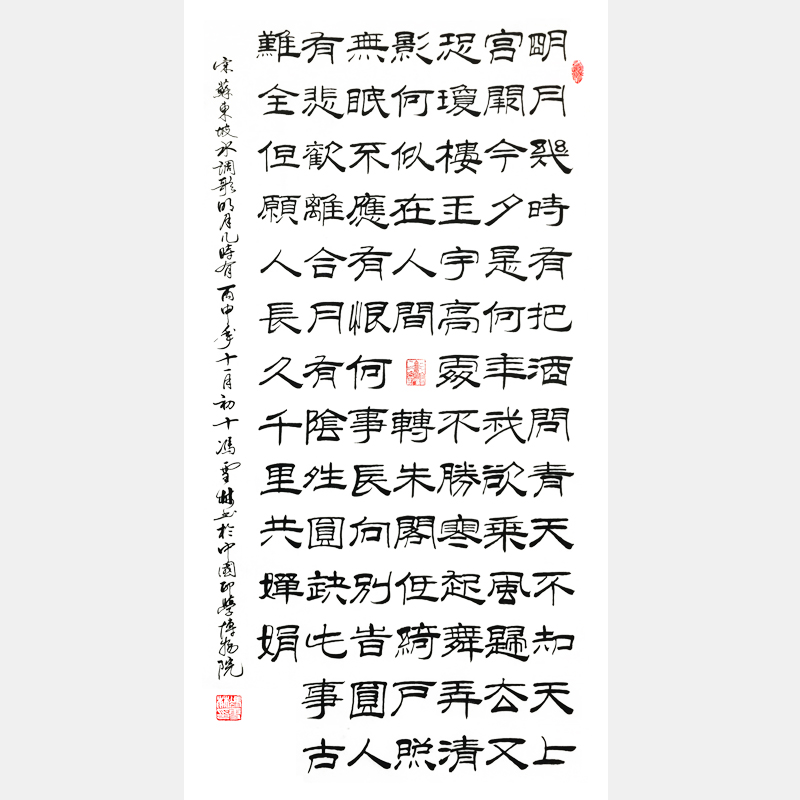 明月幾時有把酒問青天不知天上
宮闕今夕是何年我欲乘風歸去又
恐瓊樓玉宇高處不勝寒起舞弄清
影何似在人間轉朱閣低綺戶照
無眠不應有恨何事長向別旹圓人
有悲歡離合月有陰夝圓缺此事古
難全但願人長久千里共嬋娟
宋蘇東坡水調歌明月几時有丙申年十一月初十馮雪林书於中國印學博物院